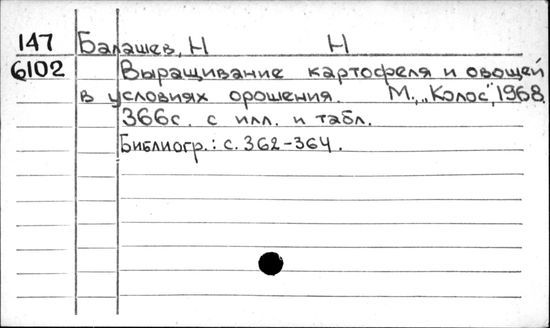 147 Балашев, Н Н
6102 Выращивание картофеля и овощей
в условиях орошения. М., „Колос", 1968.
366с. с илл. и табл.
Библиогр.: с. 362-364.